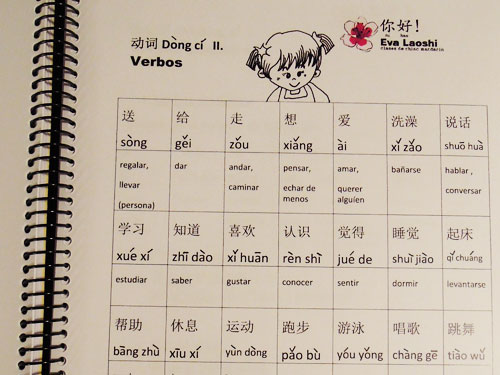 动词 Dòng cí II.
Verbos
你好!
Eva Laoshi
Clases de chino mandarín
送 给 走 想 爱 洗澡 说话
sòng gěi zǒu xiǎng ài xǐ zǎo shuō huà
regalar, dar andar, pensar, amar, bañarse hablar ,
llevar caminar echar de querer conversar
(persona) menos alguien
学习 知道 喜欢 认识 觉得 睡觉 起床
xué xí zhī dào xǐ huān rèn shì jué de shuì jiào qǐ chuáng
estudiar saber gustar conocer sentir dormir levantarse
帮助 休息 运动 跑步 游泳 唱歌 跳舞
bāng zhù xīu xí yùn dòng pǎo bù yóu yǒng chàng gē tiào wǔ